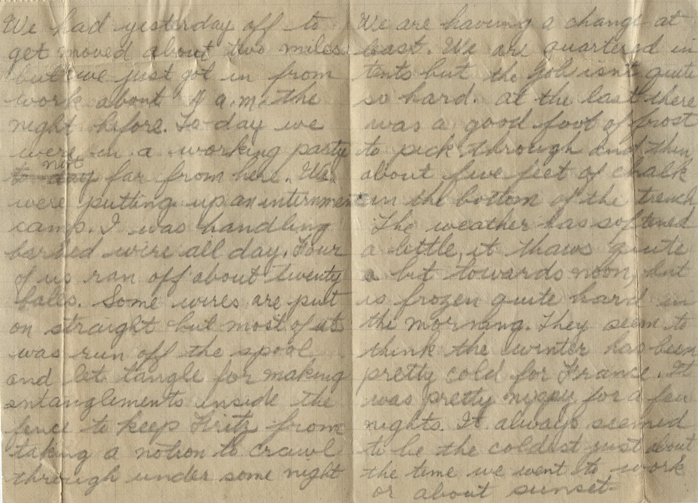 We had yesterday off to
get moved about two miles
but we just got in from
work about 4 a.m. the
night before. To-day we
were on a working party
not
to-day far from here. We
were putting up an internment
camp. I was handling
barbed wire all day. Four
of us ran off about twenty
bales. Some wires are put
on straight but most of it
was run off the spool,
and let tangle for making
entanglements inside the
fence to keep Fritz from
taking a notion to crawl
through under some night
We are having a change at
last. We are quartered in
tents but the job isn't quite
so hard. at the last there
was a good foot of frost
to pick through and then
about five feet of chalk
in the bottom of the trench
The weather has softened
a little, it thaws quite
a bit towards noon, but
is frozen quite hard in
the morning. They seem to
think the winter has been
pretty cold for France. It
was pretty nippy for a few
nights. It always seemed
to be the coldest just about
the time we went to work
or about sunset